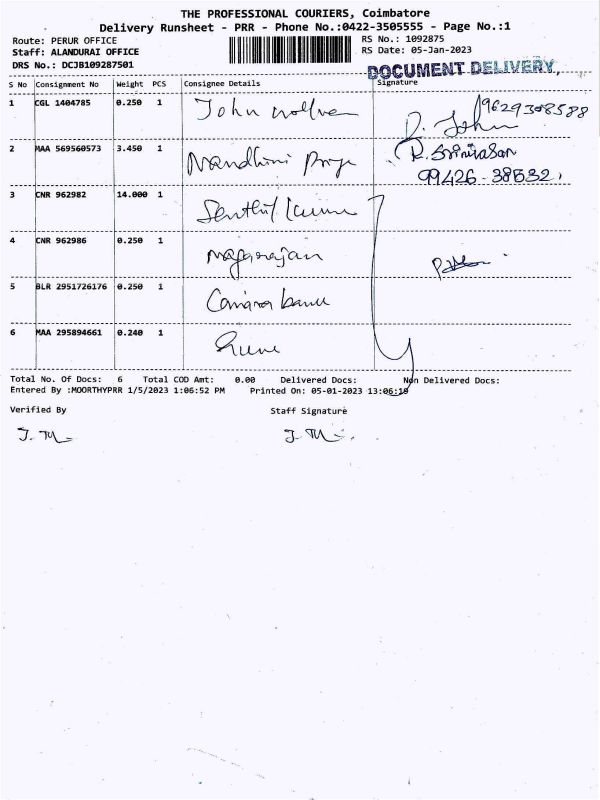 THE PROFESSIONAL COURIERS, Coimbatore
Delivery Runsheet - PRR - Phone No.:0422-3505555 - Page No.:1
Route: PERUR OFFICE
RS No.: 1092875
Staff: ALANDURAI OFFICE
RS Date: 05-Jan-2023
DRS No.: DCJB109287501
DOCUMENT DELIVERY,
S No Consignment No Weight PCS Consignee Details Signature
1 CGL 1404785 0.250 1 John
9629308588
D. John
2 MAA 569560573 3.450 1 Nandhini Priya
R. Srinivasan
99426-38532
3 CNR 962982 14.000 1 Senthil Kumar
4 CNR 962986 0.250 1 Nagarajan
5 BLR 2951726176 0.250 1 Canara bank
6 MAA 295894661 0.240 1
Total No. Of Docs: 6 Total COD Amt: 0.00 Delivered Docs: Non Delivered Docs:
Entered By :MOORTHYPRR 1/5/2023 1:06:52 PM Printed On: 05-01-2023 13:06:19
Verified By Staff Signature